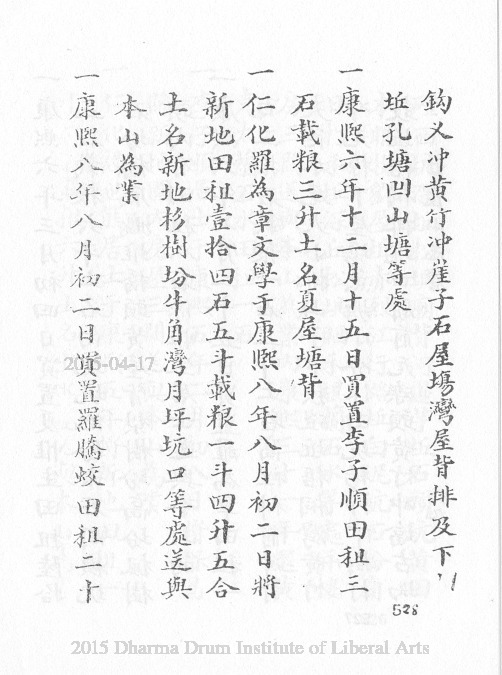 鈎乂冲黄竹冲崖子石屋塲灣屋背排及下
坵孔塘凹山塘等處
一康熙六年十二月十五日買置李子順田租三
石載粮三升土名夏屋塘背
一仁化羅為章文學于康熙八年八月初二日將
新地田租壹拾四石五斗載粮一斗四升五合
土名新地杉樹坳牛角灣月坪坑口等處送與
本山為業
一康熙八年八月初二日買置羅騰蛟田租二十
528
2015-04-17
2015 Dharma Drum Institute of Liberal Arts